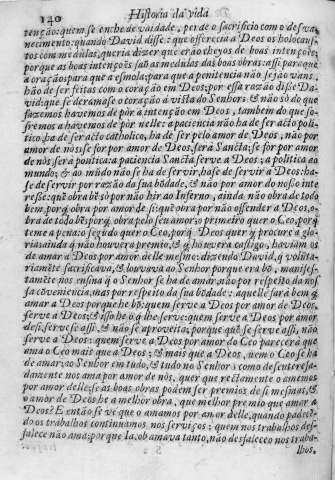 140 Historia da vida
tenção: quem se enche de vaidade, perde o sacrificio com o desva-
necimento: quando David disse: que offerecia a Deos os holocau-
stos com medulas, queria dizer que erão cheyos de boas intenções
porque as boas intenções saõ as medulas das boas obras: assi para que
a oração, para que a esmola; para que a penitencia não sejão vans,
hão de ser feitas com o coração em Deos; por essa razão disse Da-
vid: que se deramasse o coração á vista do Senhor: & não só do que
fazemos havemos de pór a intenção em Deos; tambem do que so-
fremos a havemos de pór nelle: a paciencia não ha de ser acto poli-
tico, ha de ser acto catholico, ha de ser pelo amor de Deos, não por
amor de nós; se for por amor de Deos, será Sancta; se for por amor
de nós, será politica: a paciencia Sancta serve a Deos; a politica ao
mundo; & ao mũdo não se ha de servir, ha se de servir a Deos: ha-
se de servir por razão da sua bõdade, & não por amor do nosso inte-
resse: que obra bẽ só por não hir ao Inferno, ainda não obra de todo
bem porq̃ obra por amor de si: que obra por não offender a Deos, o-
bra de todo bẽ: porq̃ obra pelo seu amor; primeiro quer o Ceo, porq̃
teme a pena: o segũdo quer o Ceo, porq̃ Deos quer q̃ procure a glo-
ria: ainda q̃ não houvera premio, & q̃ houvera castigo, haviamos
de amar a Deos por amor delle mesmo: dizendo David, q̃ volun-
tariamẽte sacrificava, & louvava ao Senhor porque era bõ, manifes-
tamẽte nos ensina q̃ o Senhor se ha de amar, não por respeito da nos-
sa conveniencia, mas por respeito da sua bõdade: aquelle será bem q̃
amar a Deos porque he bõ; quem serve a Deos por amor de Deos,
serve a Deos; & isso he o q̃ lhe serve: quem serve a Deos por amor
de si, serve se assi, & não se aproveita; porque quẽ se serve assi, não
serve a Deos: quem serve a Deos por amor do Ceo parecerá que
ama o Ceo mais que a Deos; & mais que a Deos, nem o Ceo se ha
de amar; ao Senhor em tudo, & tudo no Senhor: como desenteresa-
damente nos ama por amor de nós, quer que rectamente o amemos
por amor delle: se as boas obras podem ser premios de si mesmas, &
o amor de Deos he a melhor obra, que melhor premio que amar a
Deos? E então se ve que o amamos por amor delle, quando padecẽ-
do os trabalhos continuamos nos serviços: quem nos trabalhos des-
falece não ama: porque Ia, ob amava tanto, não desfaleceo nos traba-
lhos.